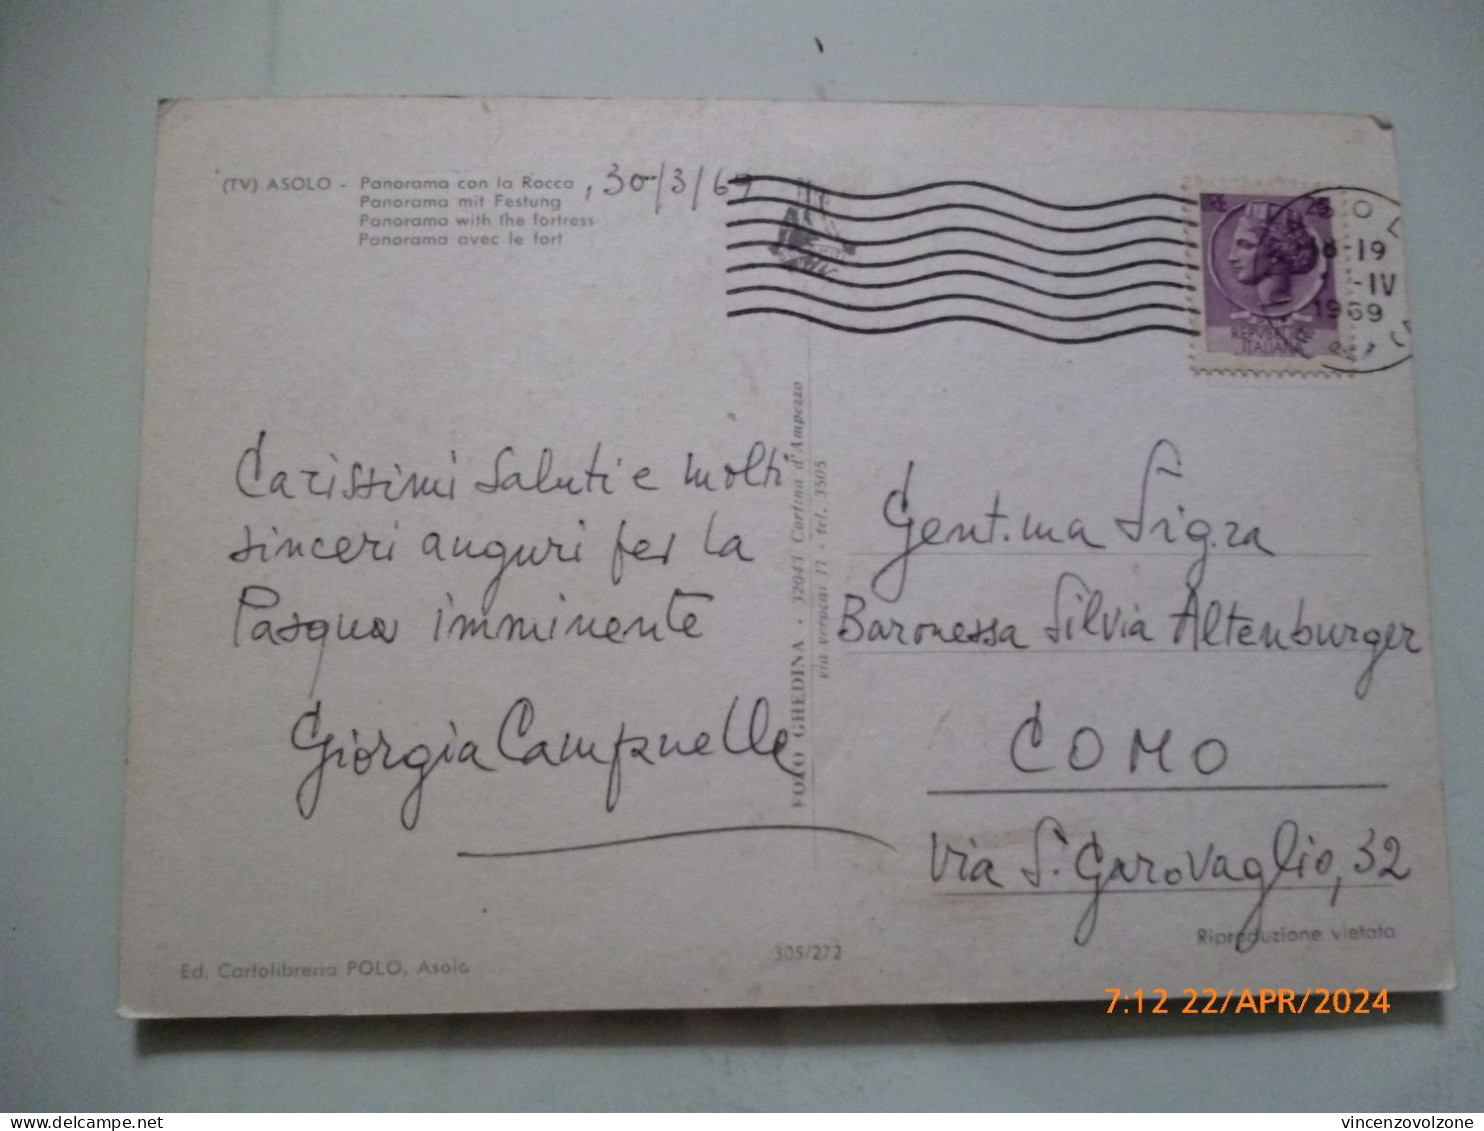 (TV) ASOLO - Panorama con la Rocca , 30/3/69
Panorama mit Festung
Panorama with the fortress
Panorama avec le fort
LIRE 25
REPVBBLICA
ITALIANA
19
-IV
1969
Carissimi saluti e molti
sinceri auguri per la
Pasqua imminente
Giorgia Campanelle
FOTO GHEDINA • 32043 Cortina d'Ampezzo
tel. 3505
Gent.ma Sig.ra
Baronessa Silvia Altenburger
COMO
Via S. Garovaglio, 32
Riproduzione vietata
305/272
Ed. Cartolibreria POLO, Asolo
7:12 22/APR/2024
delcampe.net
vincenzovolzone